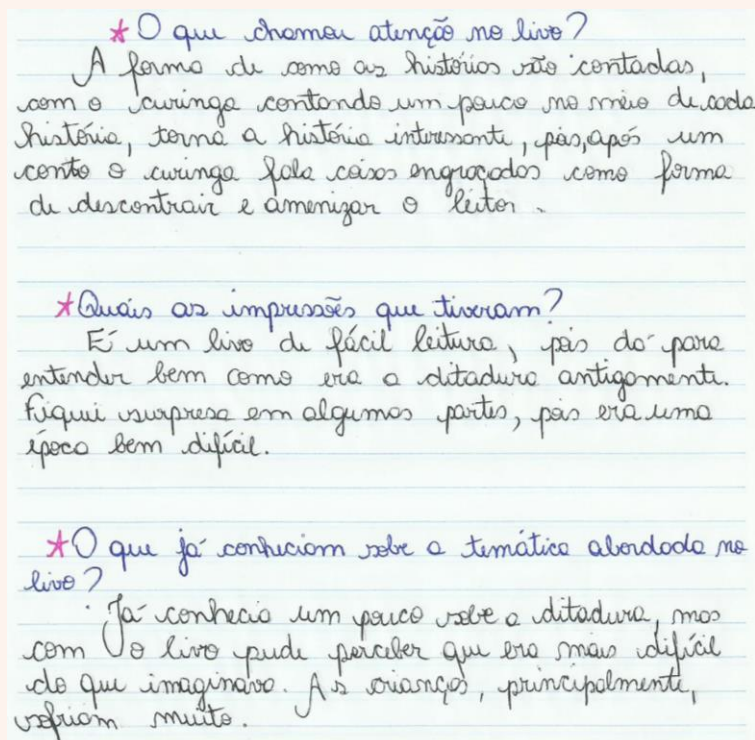 * O que chamou atenção no livro?
A forma de como as histórias são contadas,
com o curinga contando um pouco no meio de cada
história, torna a história interessante, pois, após um
conto o curinga fala coisas engraçadas como forma
de descontrair e amenizar o leitor.
* Quais as impressões que tiveram?
É um livro de fácil leitura, pois dá para
entender bem como era a ditadura antigamente.
Fiquei surpresa em algumas partes, pois era uma
época bem difícil.
* O que já conheciam sobre a temática abordada no
livro?
Já conhecia um pouco sobre a ditadura, mas
com o livro pude perceber que era mais difícil
do que imaginava. As crianças, principalmente,
sofriam muito.